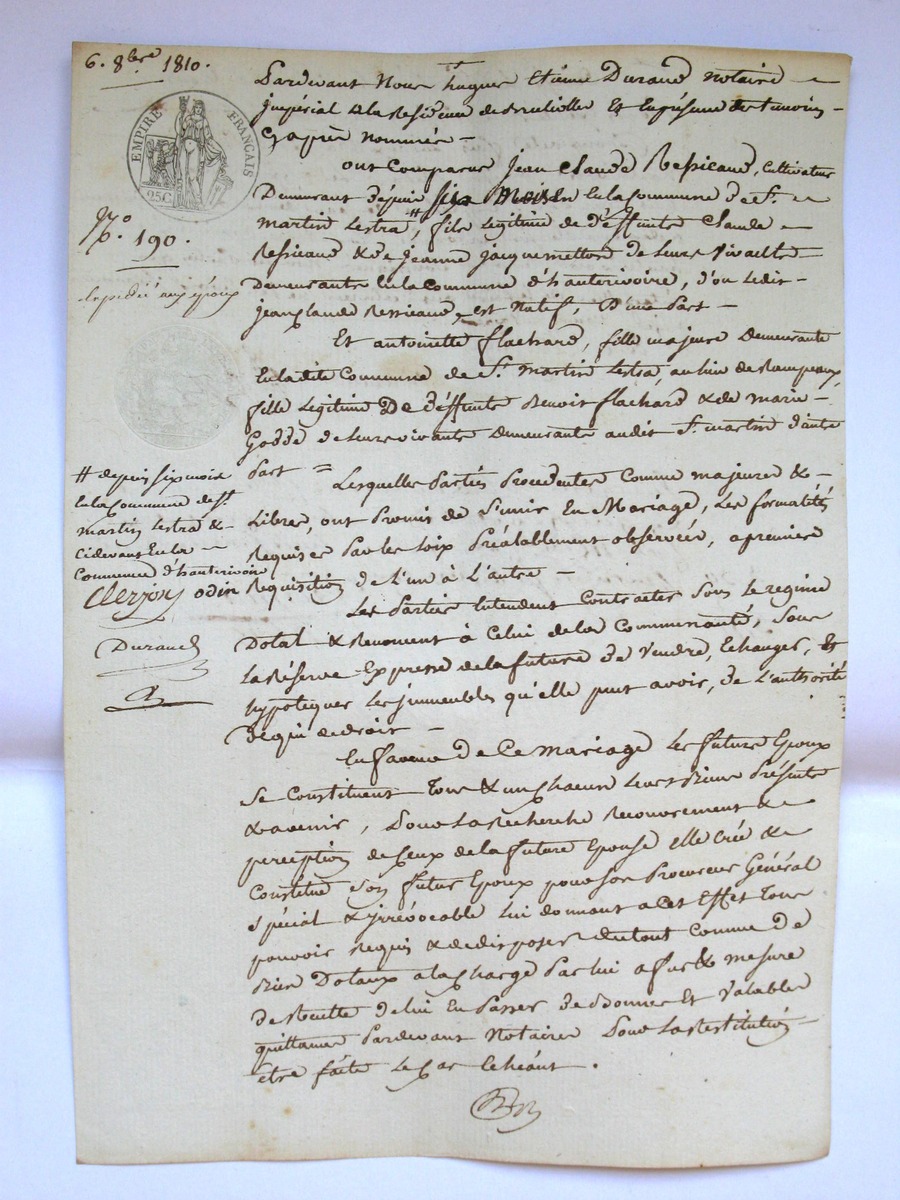 6. 8bre 1810.
EMPIRE FRANÇAIS
25C
No. 190.
expedié aux époux
Pardevant Nous hugues Etienne Durand notaire
impérial à la Residence de et en présence des temoins
Cy après nommés
ont Comparus Jean Claude Ressicaud, Cultivateur
Demeurant depuis six mois en la Commune de St.
martin Lestra #, fils Legitime de deffunts Claude
Ressicaud & de Jeanne jacquemetton de Leurs vivants
Demeurants en la Commune d'hauterivoire, d'ou Ledit
jean Claude Ressicaud, est Natif, D'une Part
Et antoinette flachard, fille majeure demeurante
En la dite Commune de St. martin Lestra, au lieu de Rampeaux
fille Legitime De deffunts Benoit flachard & de marie
Godde de leurs vivants demeurants audit St. martin d'autre
Part =
Lesquelles Parties Procedentes Comme majeures &
Libres, ont Promis de S'unir En Mariage, Les formalités
Requises Par les Loix Préalablement observées, a premiere
Requisition de L'un à L'autre
# depuis six mois
en la Commune de St.
martin Lestra &
cidevant En la
Commune d'hauterivoire
Clerjon odin
Durand
Les Parties Entendent Contracter Sous Le regime
Dotal & Renoncent à Celui de la Communauté, Sous
La Réserve Expresse de la future de Vendre, Echanger, Et
hypotequer Les immeubles qu'elle peut avoir, de L'authorité
de qui de droit
En faveur de Ce Mariage Les future Epoux
Se Constituent Tous & un chacun Leurs Biens Présents
& avenir, Pour La Recherche Recouvrement &
perception de Ceux de la future Epouse elle Crée &
Constitue Son futur Epoux pour Son Procureur Général
Spécial & irrévocable Lui donnant a Cet Effet Tous
pouvoir Requis & de disposer du tout Comme de
Bien Dotaux a la Charge Par lui a fur & mesure
de Recette de lui En Passer de Bonnes Et Valables
quittances Pardevant Notaires Pour La Restitution
être faite Le Cas Echéant.